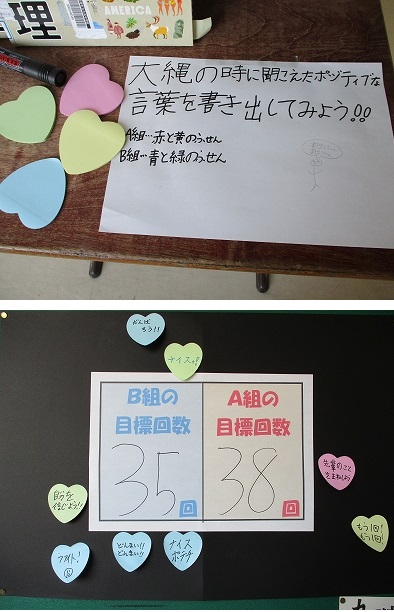 理
AMERICA
大縄の時に聞こえたポジティブな
言葉を書き出してみよう!!
A組…赤と黄のふせん
B組…青と緑のふせん
がんば
ろう!!
ナイス!!
B組の
目標回数
35回
A組の
目標回数
38回
自分を
信じよう!!
先輩のこと
もう1回!
もう1回!
ファイト!
どんまい!!
どんまい!!
ナイス
ポテチ